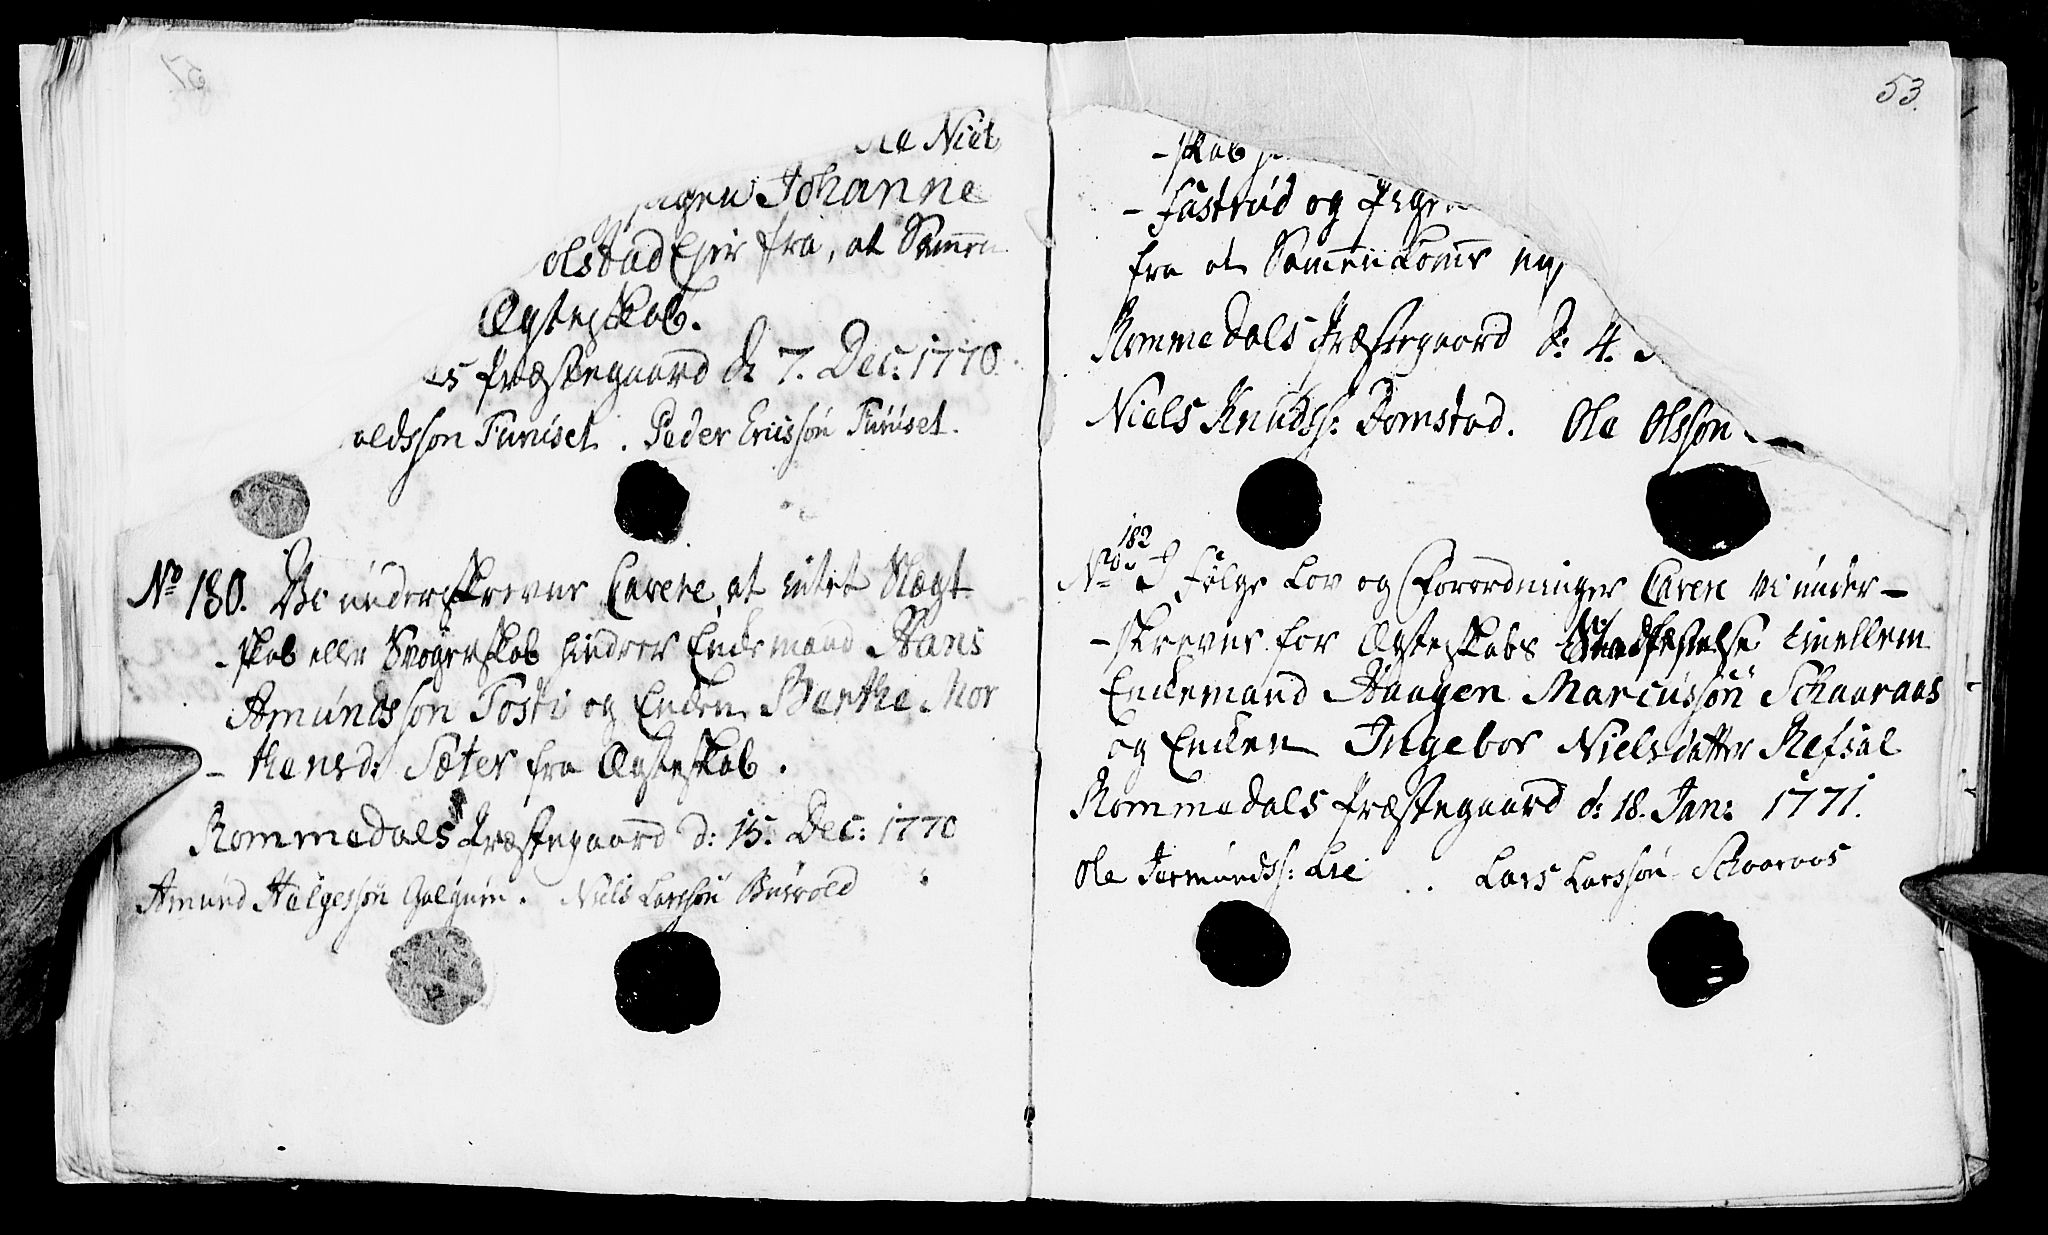 Ole Niels
Pigen Johanne
olstad her fra, at Sam̄en
Ægteskab.
es Præstegaard d: 7. Dec: 1770
oldsson Furuset. Peder Ericssøn Furuset.
No 180. Vi underskrevne Cavere, at intet Slægt
-skab eller Svogerskab hindrer Enkemand Hans
Amundsson Tosti og Enken Berthe Mor
-thensd: Sæter fra Ægteskab.
Rommedals Præstegaard d: 15. Dec: 1770
Amund Helgessøn Galgum. Niels Larssøn Busvold
53.
-skab
-fastrud og Pigen
fra at Sam̄enkom̄e
Rommedals Præstegaard d: 4.
Niels Knudss: Domstad. Ole Olsson
No 182 I Følge Lov og Forordninger Cavere vi under-
-skrevne for Ægteskabs Stadfestelse imellem
Enkemand Haagen Marcussøn Schaaraas
og Enken Ingebor Nielsdatter Refsal
Rommedals Præstegaard d: 18. Jan: 1771.
Ole Jermundss: Lie . . Lars Larssøn Schaaraas